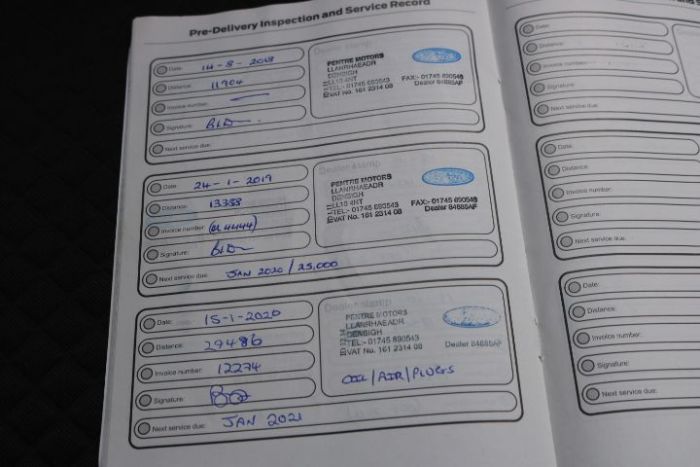 Pre-Delivery Inspection and Service Record
Date: 14-8-2018
Distance: 11904
Invoice number:
Signature:
Next service due:
Dealer stamp
PENTRE MOTORS
LLANRHAEADR
DENBIGH
LL16 4NT
TEL:- 01745 890543 FAX:- 01745 890548
VAT No. 161 2314 08 Dealer 84685AP
Date: 24-1-2019
Distance: 13358
Invoice number:
Signature:
Next service due: JAN 2020 / 25,000
Dealer stamp
PENTRE MOTORS
LLANRHAEADR
DENBIGH
LL16 4NT
TEL:- 01745 890543 FAX:- 01745 890548
VAT No. 161 2314 08 Dealer 84685AP
Date: 15-1-2020
Distance: 29486
Invoice number: 12274
Signature:
Next service due: JAN 2021
Dealer stamp
PENTRE MOTORS
LLANRHAEADR
DENBIGH
TEL:- 01745 890543
VAT No. 161 2314 08 Dealer 84685AP
OIL/AIR/PLUGS
Date:
Distance:
Invoice number:
Signature:
Next service due:
Date:
Distance:
Invoice number:
Signature:
Next service due:
Date:
Distance:
Invoice number:
Signature:
Next service due: